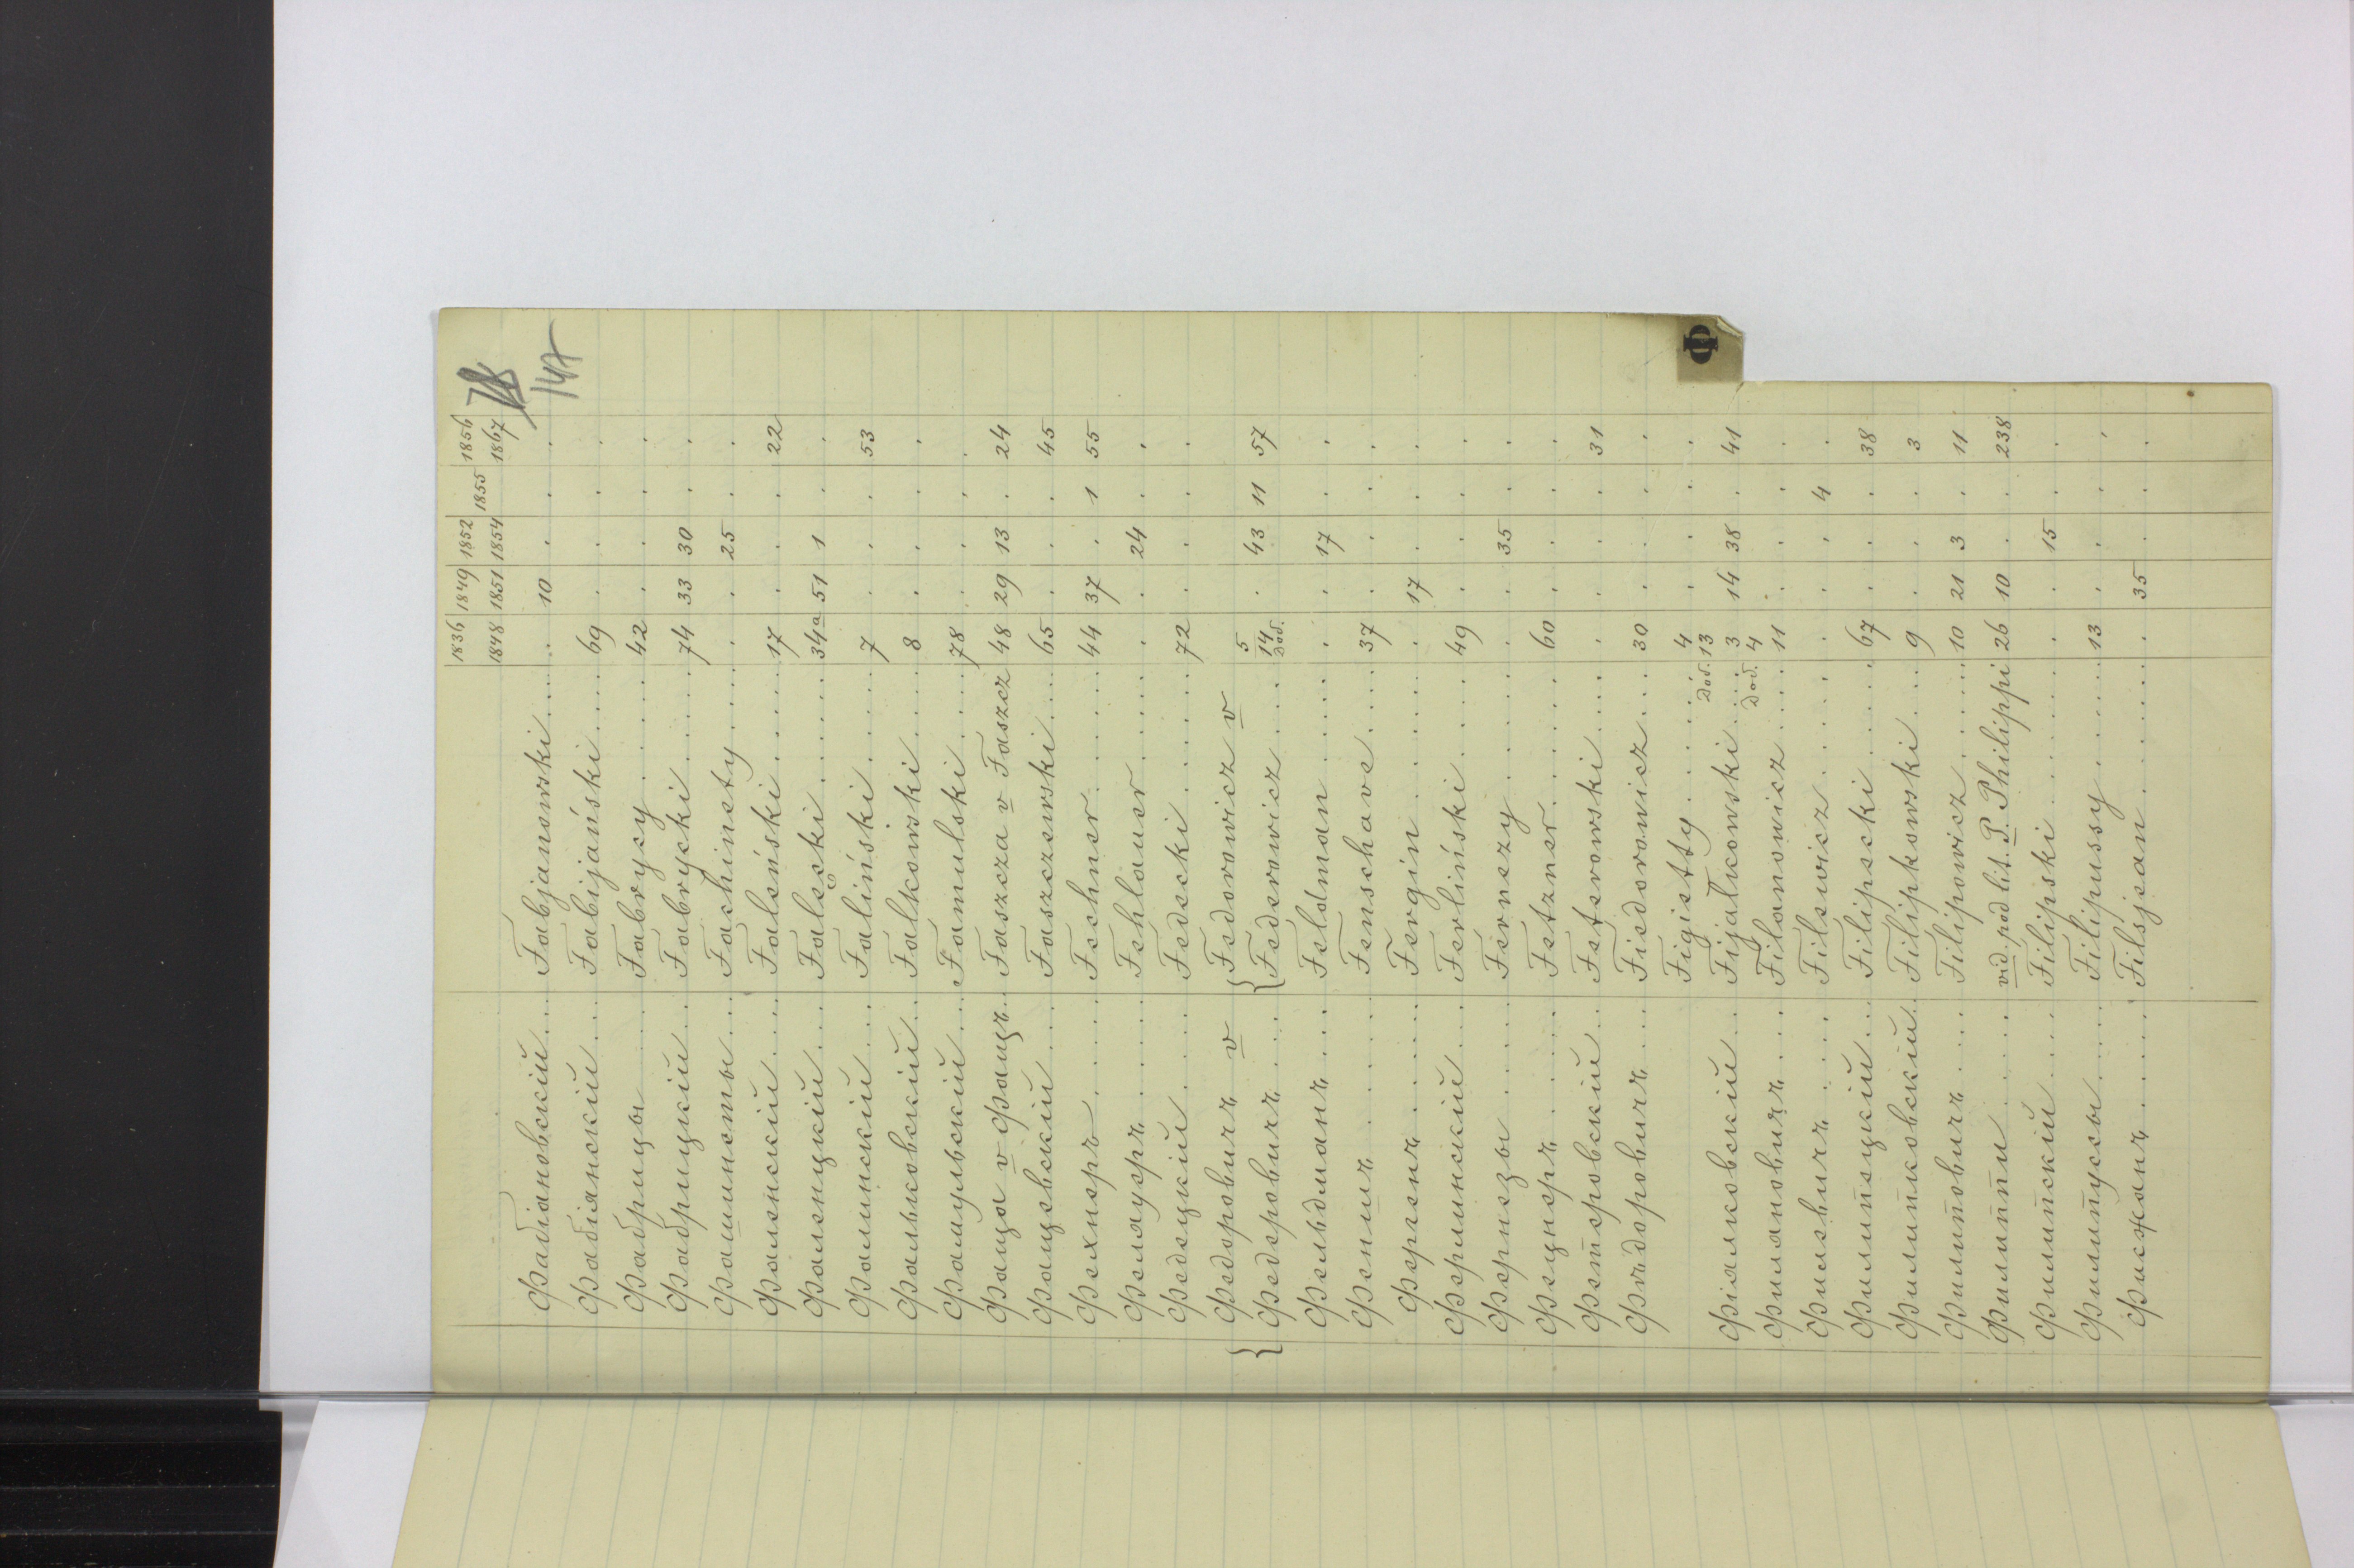 1836 | 1849 | 1852 | 1855 | 1856
1848 | 1851 | 1854 | 1867
147
Фабіановскій.... Fabjanowski.... . 10 . . .
Фабіянскій.... Fabijański..... 69 . . . .
Фабрицы .... Fabrycy..... 42 . . . .
Фабрицкій... Fabrycki..... 74 33 30 . .
Фашинеты... Fachinety.... . . 25 . .
Фаленскій.... Faleński..... 17 . . . 22
Фаленцкій... Falęcki..... 34a 51 1 . .
Фалинскій... Faliński..... 7 . . . 53
Фальковскій.. Falkowski.... 8 . . . .
Фамульскій... Famulski.... 78 . . . .
Фаща v Фащъ.. Faszcza v Faszcz 48 29 13 . 24
Фащевскій... Faszczewski... 65 . . . 45
Фехнеръ.... Fechner..... 44 37 . 1 55
Фелауеръ.... Fehlauer..... . . 24 . .
Федецкій.... Fedecki..... 72 . . . .
{ Федоровичъ v { Fedorowicz v 5
Федеровичъ... Federowicz.... 14 dod. . 43 11 57
Фельдманъ... Feldman.... . . 17 . .
Феншъ..... Fenschave.... 37 . . . .
Фергенъ.... Fergin...... . 17 . . .
Ферлинскій... Ferliński.... 49 . . . .
Фернезы.... Fernezy..... . . 35 . .
Фецнеръ.... Fetzner..... 60 . . . .
Фетеровскій.. Feterowski.... . . . . 31
Фѣдоровичъ... Fiedorowicz... 30 . . . .
Figietty..... 4 . . . .
dod. 13
Фіалковскій... Fijałkowski... 3 14 38 . 41
dod. 4
Филановичъ... Filanowicz.... 11 . . . .
Филевичъ.... Filewicz..... . . . 4 .
Филипецкій... Filipecki..... 67 . . . 38
Филипковскій.. Filipkowski... 9 . . . 3
Филиповичъ... Filipowicz.... 10 21 3 . 11
Филиппи.... vid. pod lit. P. Philippi 26 10 . . 238
Филипскій... Filipski..... . . 15 . .
Филипусы... Filipussy..... 13 . . . .
Филсжанъ.... Filsjean..... . 35 . . .
Ф